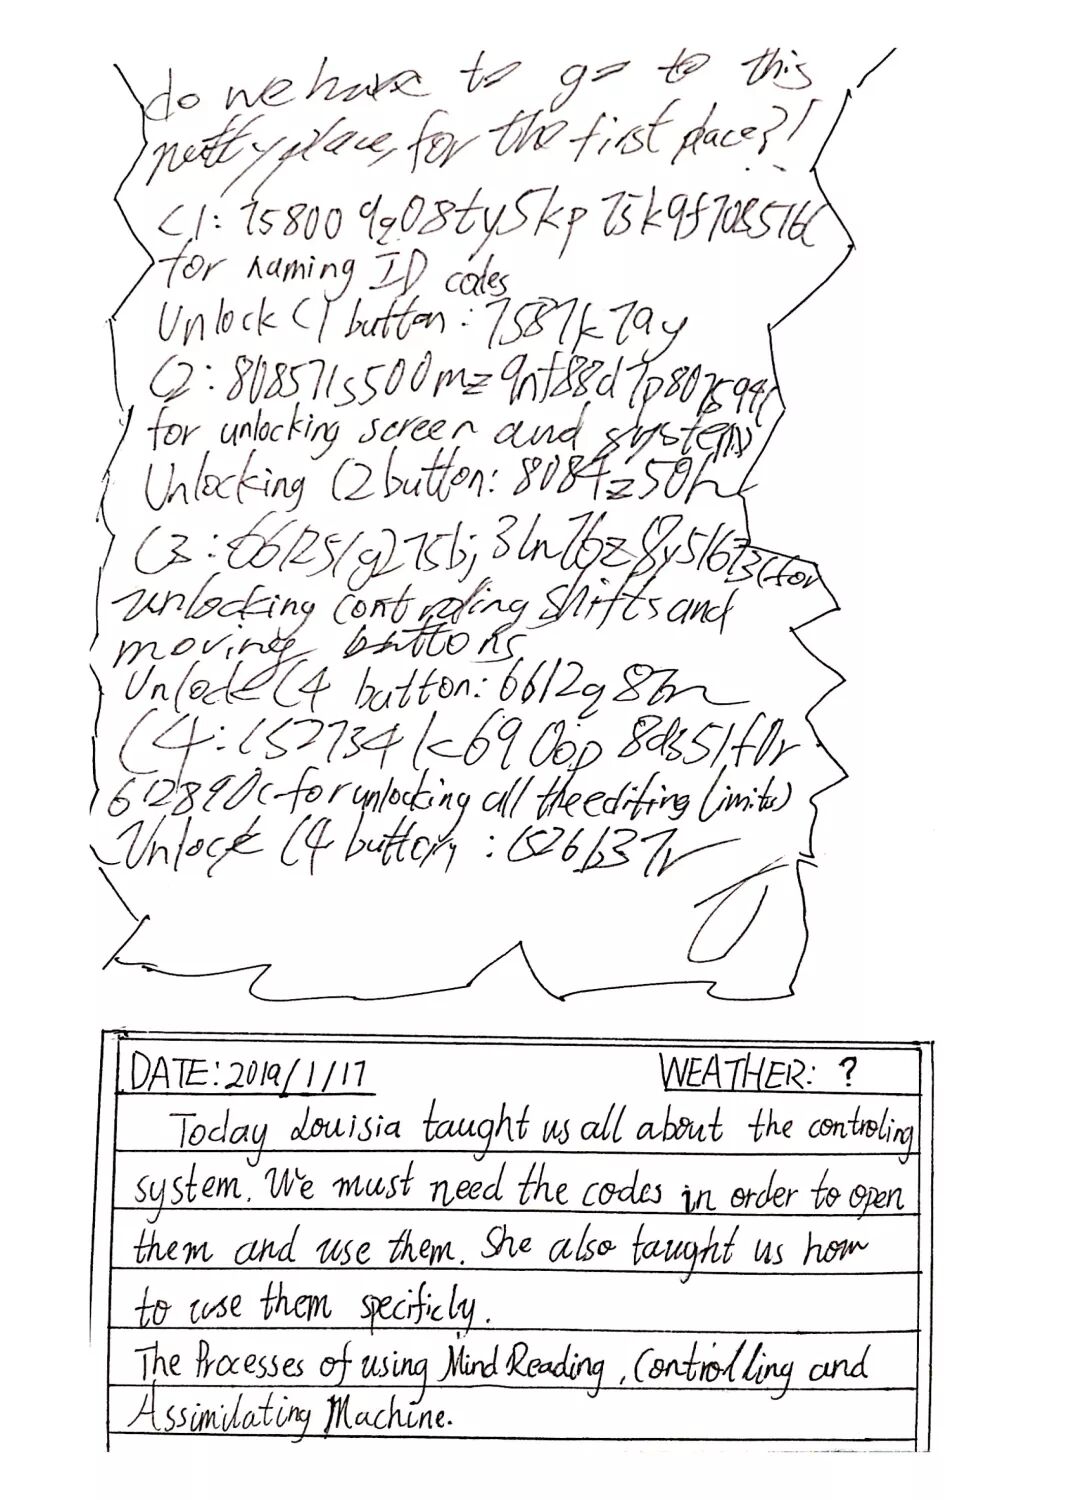 do we have to go to this
petty place, for the first place?!
C1: 75800 9908ty5kp
for naming ID codes
Unlock C1 button: 7587k7ay
C2: 808571s500mz 9nf88d7p80
for unlocking screen and system
Unlocking C2 button: 8084z50h
C3: (for
unlocking controling shifts and
moving buttons
Unlock C4 button: 6612q
C4:
for unlocking all the editing limits)
Unlock C4 button:
DATE: 2019/1/17 WEATHER: ?
Today Louisia taught us all about the controling
system. We must need the codes in order to open
them and use them. She also taught us how
to use them specificly.
The Processes of using Mind Reading, Controlling and
Assimilating Machine.